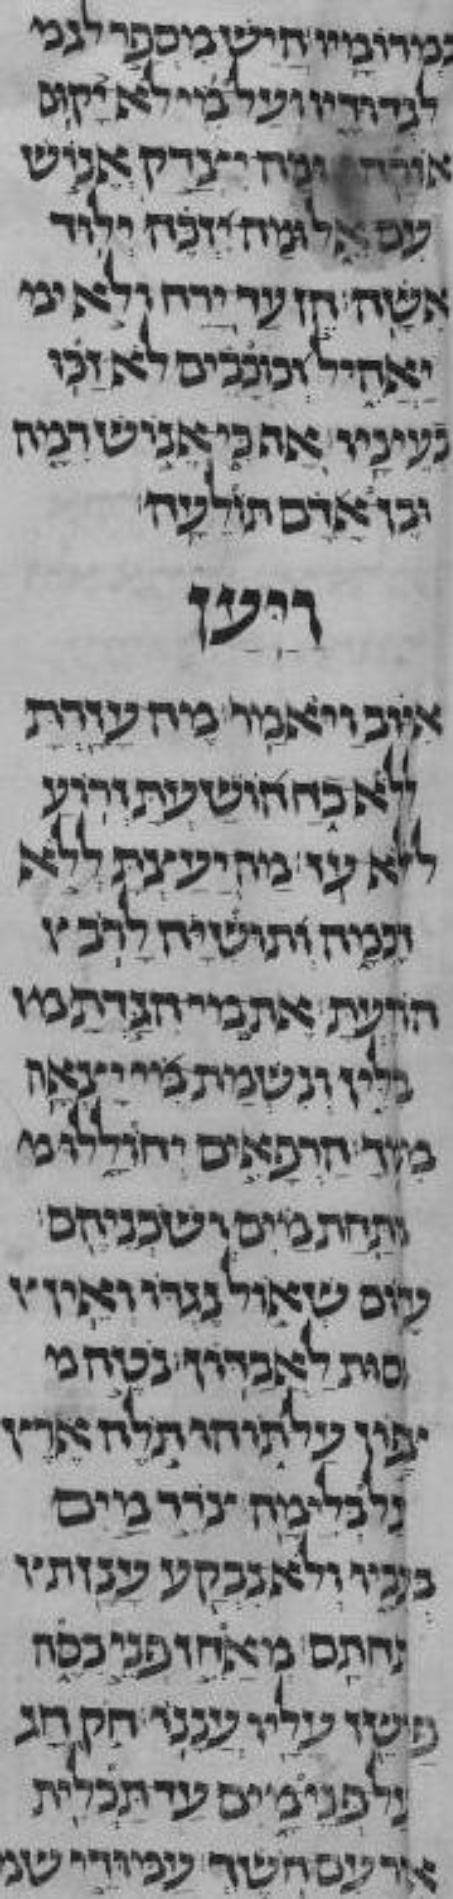 במרומיו היש מספר לגמ
לגדודיו ועל מי לא יקום
אורהו ומה יצדק אנוש
עם אל ומה יזכה ילוד
אשה הן עד ירח ולא
יאהיל וכוכבים לא זכו
בעיניו אף כי אנוש רמה
ובן אדם תולעה
ויען
איוב ויאמר מה עזרת
ללא כח הושעת זרוע
לא עז מה יעצת ללא
חכמה ותושיה לרב
הודעת את מי הגדת
מלין ונשמת מי יצאה
ממך הרפאים יחוללו מ
מתחת מים ושכניהם
ערום שאול נגדו ואין
כסות לאבדון נטה
צפון על תוהו תלה ארץ
על בלימה צרר מים
בעביו ולא נבקע ענן
תחתם מאחז פני כסה
פרשז עליו עננו חק חג
על פני מים עד תכלית
אור עם חשך עמודי שמ